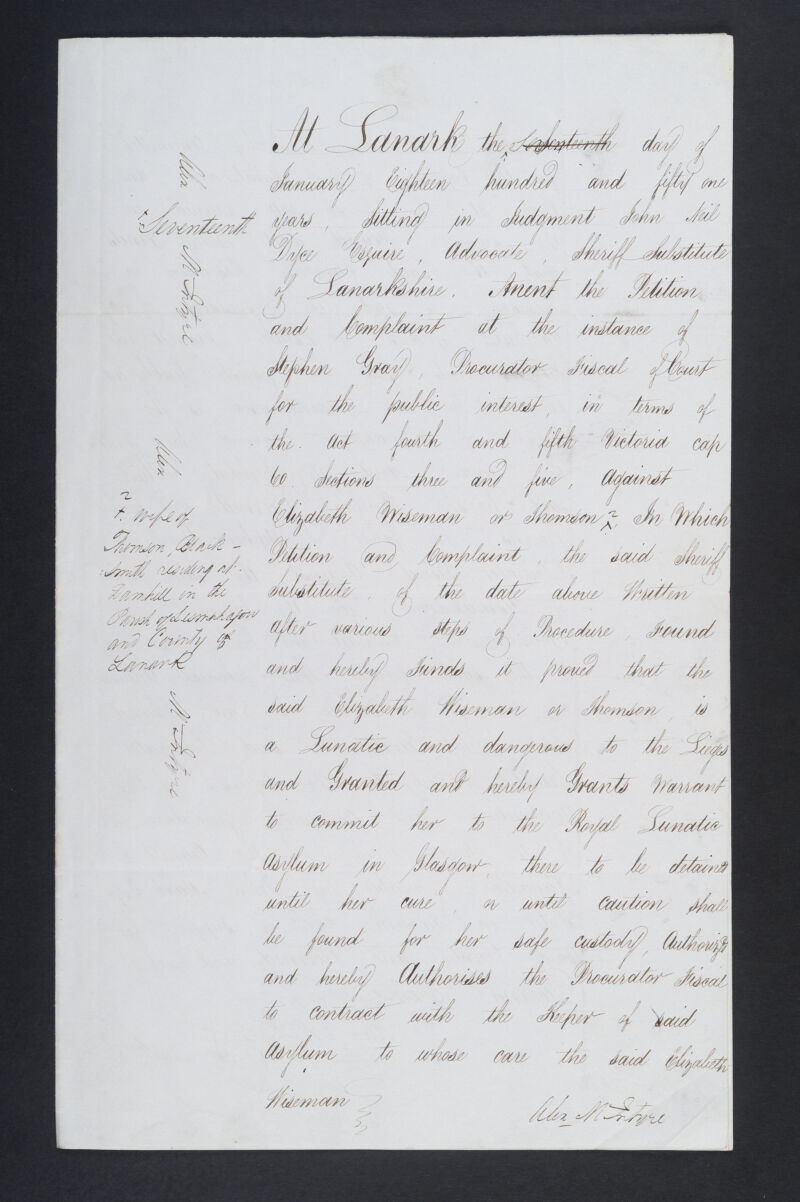 At Lanark the ‸ Seventeenth day of
January Eighteen hundred and fifty one
years, Sitting in Judgment John Neil
Dyce Esquire, Advocate, Sheriff Substitute
of Lanarkshire. Anent the Petition
and Complaint at the instance of
Stephen Gray, Procurator Fiscal of Court
for the public interest, in terms of
the Act fourth and fifth Victoria cap
60. Sections three and five, Against
Elizabeth Wiseman or Thomson ‸, In Which
Petition and Complaint, the said Sheriff
Substitute, of the date above Written
after various steps of Procedure, Found
and hereby Finds it proved that the
said Elizabeth Wiseman or Thomson, is
a Lunatic and dangerous to the Lieges
and Granted and hereby Grants Warrant
to commit her to the Royal Lunatic
Asylum in Glasgow, there to be detained
until her cure, or until caution shall
be found for her safe custody, Authorized
and hereby Authorises the Procurator Fiscal
to contract with the Keeper of said
Asylum to whose care the said Elizabeth
Wiseman
Alex McIntyre
Alex
‸ Seventeenth
McIntyre
Alex
‸ wife of
Thomson, Black-
smith residing at
in the
Parish of Lesmahagow
and County of
Lanark
McIntyre